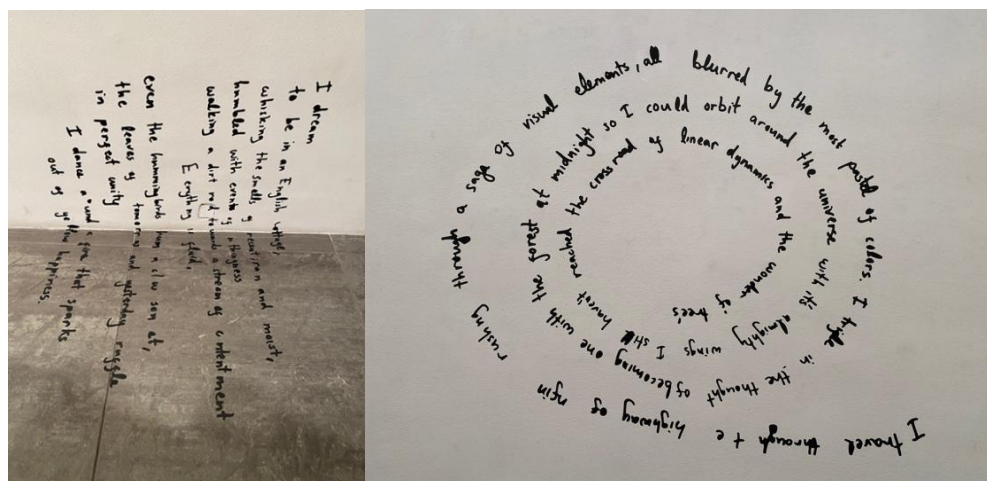 I dream
to be in an English cottage,
whisking the smells of recent rain and moist,
humbled with events of nothingness
walking a dirt road towards a stream of contentment
Everything is fluid,
even the hummingbirds hum a slow song at,
the leaves of tomorrow and yesterday ruggle
in pergect unity
I dance a fire that sparks
out of yellow happiness.
I travel through the highway of
rushing through a sage of visual elements, all blurred by the most pastel of colors. I
in the thought of becoming one with the forest at midnight so I could orbit around the universe with it's almighty wings I still haven't reached the crossroad of linear dynamics and the wonder of tree's